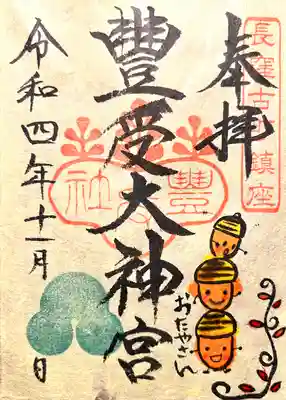 奉拝
長窪古町鎮座
豐受大神宮
豐受社
おたやさん
令和四年十一月 日